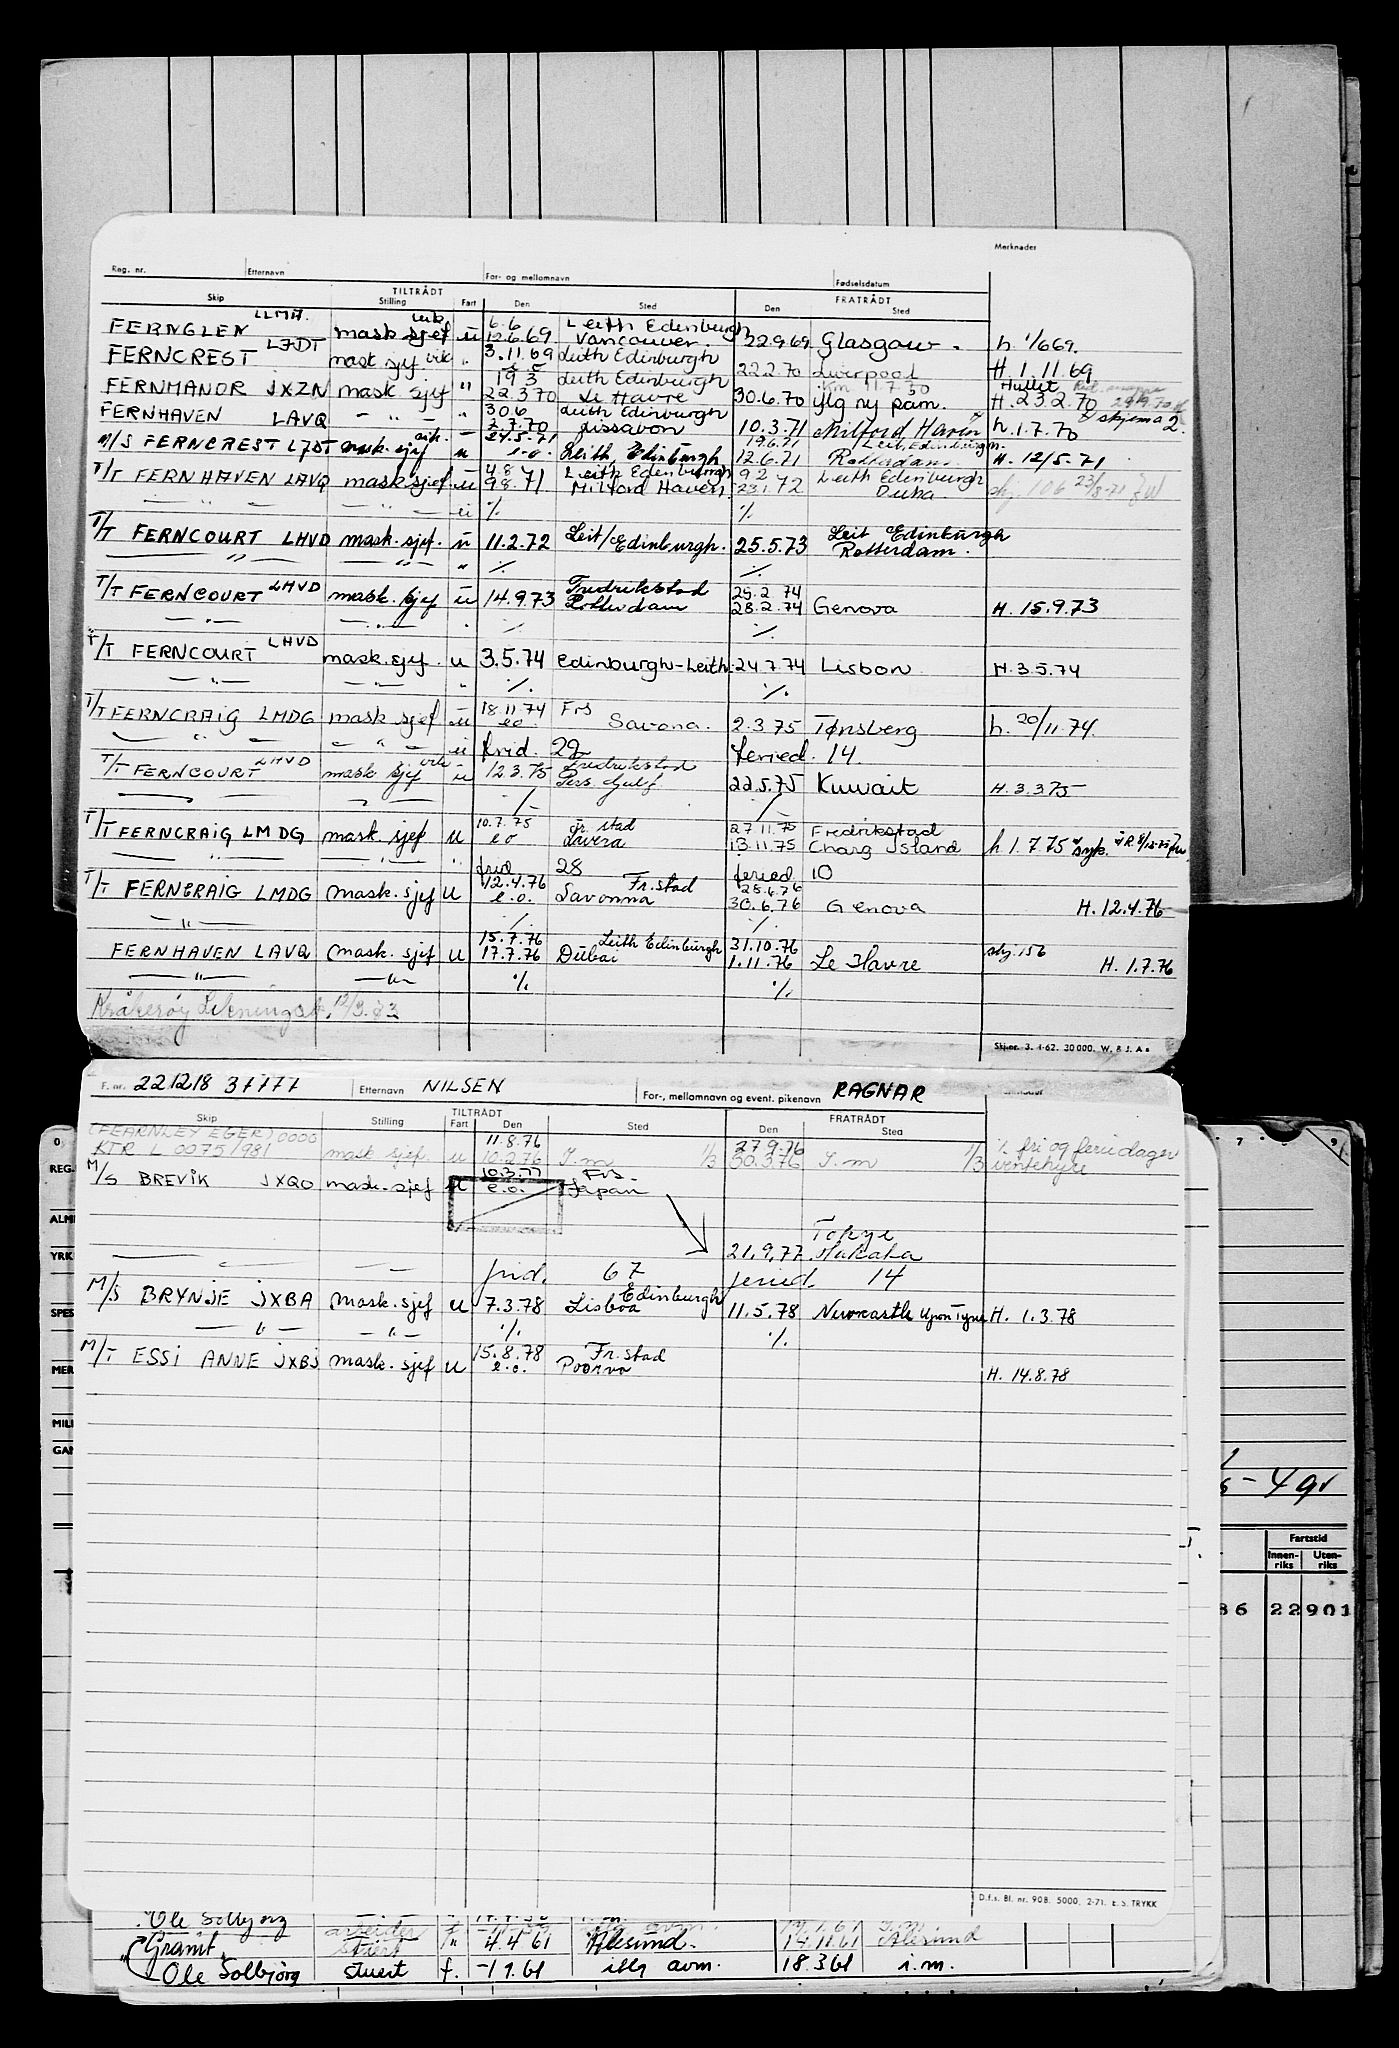 Merknader
Reg. nr. Etternavn For- og mellomnavn Fødselsdatum
TILTRÅDT FRATRÅDT
Skip Stilling Fart Den Sted Den Sted
LLMA. vik 6.6 Leith Edinburgh
FERNGLEN mask sjef u 12.6.69 Vancouver. 22.9.69 Glasgow. h 1/669.
FERNCREST L7DT mask sjef vik " 3.11.69 Leith Edinburgh 22.2.70 Liverpool H. 1.11.69
19 3 Leith Edinburgh
FERNMANOR JXZN mask sjef " 22.3.70 Le Havre 30.6.70 iflg ny påm. H. 23.2.70
30 6 Leith Edinburgh
FERNHAVEN LAVQ - " - " 2.7.70 Lissabon 10.3.71 Milford Haven h. 1.7.70 skjema 2.
24.5.71 19.6.71 Leit, Edinburgh.
M/S FERNCREST L7DT mask. sjef u e.o. Leith, Edinburgh 12.6.71 Rotterdam. H. 12/5.71
4.8 Leith Edinburgh 9 2 Leith Edinburgh
T/T FERNHAVEN LAVQ mask sjef u 9.8.71 Milford Haven 23.1.72 Duba skj. 106 23/8-71
— " — — " — u ./. ./.
Leit Edinburgh
T/T FERNCOURT LHVD mask. sjef. u 11.2.72 Leit/Edinburgh. 25.5.73 Rotterdam.
— " — — " — " ./. ./.
Fredrikstad 25.2.74
T/T FERNCOURT LHVD mask. sjef u 14.9.73 Rotterdam 28.2.74 Genova H. 15.9.73
— " — — " — " ./. ./.
T/T FERNCOURT LHVD mask. sjef. u 3.5.74 Edinburgh-Leith. 24.7.74 Lisbon H. 3.5.74
— " — — " — " ./. ./.
18.11.74 Frs
T/T FERNCRAIG LMDG mask sjef u eo Savona. 2.3.75 Tønsberg h. 20/11.74.
— " — — " — u frid. 29 feried. 14.
T/T FERNCOURT LHVD mask sjef vik u 12.3.75 Fredrikstad
Pers. Gulf. 22.5.75 Kuwait H. 3.3.75
— " — — " — ./. ./.
10.7.75 Fr. stad 27.11.75 Fredrikstad
T/T FERNCRAIG LMDG mask. sjef u e o Lavera 13.11.75 Charg Island h 1.7.75 syk.
— " — — " — " frid 28 feried 10
12.4.76 Fr. stad 28.6.76
T/T FERNCRAIG LMDG mask. sjef u e.o. Savonna 30.6.76 Genova H. 12.4.76
— " — ./. ./.
15.7.76 Leith Edinburgh 31.10.76
FERNHAVEN LAVQ mask. sjef u 17.7.76 Dubai 1.11.76 Le Havre skj. 156 H. 1.7.76
— " — — " — ./. ./.
Kråkerøy Likningsk. 12/3.83
Skj.nr. 3. 1-62. 30 000. W. & J. A.s
F. nr. 221218 37777 Etternavn NILSEN For-, mellomnavn og event. pikenavn RAGNAR
TILTRÅDT FRATRÅDT
Skip Stilling Fart Den Sted Den Sted
(FEARNLEY EGER) 0000 11.8.76 27.9.76
KTR L 0075/981 mask. sjef. u 10.2.76 I.m 1/3 30.3.76 I.m 1/3 ./. fri og feriedager
ventehyre
10.3.77 Frs.
M/S BREVIK JXQO mask. sjef u e.o. Japan
Tokyo
21.9.77
— " — frid. 67 feried. 14
M/S BRYNJE JXBA mask. sjef u 7.3.78 Lisboa Edinburgh 11.5.78 Newcastle Upon Tyne H. 1.3.78
— " — — " — ./. ./.
15.8.78 Fr. stad
M/T ESSI ANNE JXBJ mask. sjef u e.o. Poorvo H. 14.8.78
D.f.s. Bl. nr. 908. 5000. 2-71. E.S. TRYKK
REG.
YRK
SPES
MER
MILI
4 gr
Fartstid
Innen-riks Uten-riks
86 22 901
Ole Solbjørg
Granit stuert " 4.4 61 Ålesund. 14.11.61 Ålesund
Ole Solbjørg stuert f. -1 9.61 iflg avm. 18.3 61 i.m.